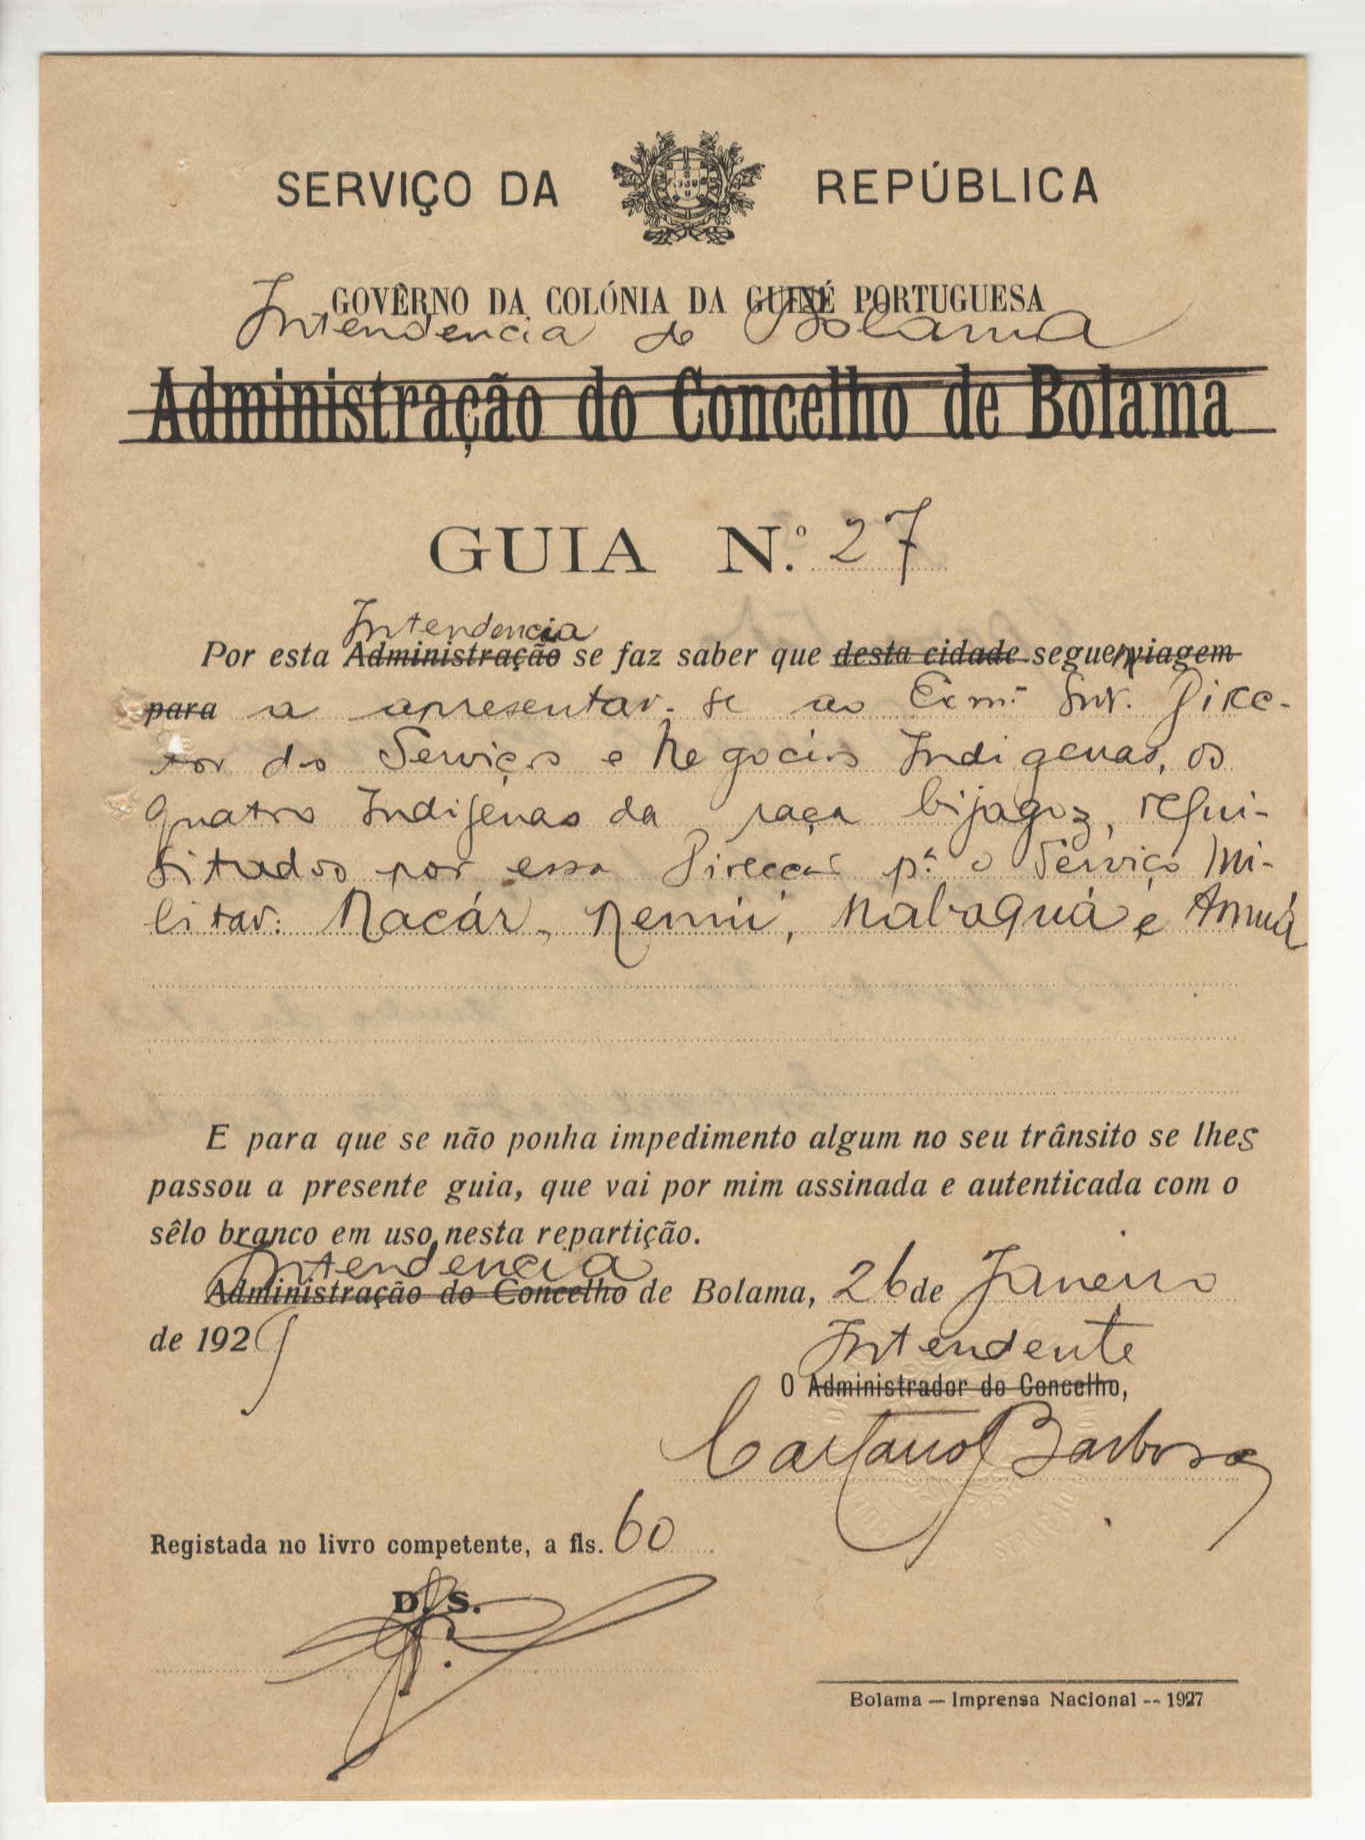 SERVIÇO DA REPÚBLICA
GOVÊRNO DA COLÓNIA DA GUINÉ PORTUGUESA
Intendencia de Bolama
Administração do Concelho de Bolama
GUIA N.º 27
Intendencia
Por esta Administração se faz saber que desta cidade seguem viagem
para a apresentar-se ao Exmº Snr. Dire-
tor dos Serviços e Negocios Indigenas, os
quatro Indigenas da raça bijagoz, requi-
sitados por essa Direcção pª o Serviço Mi-
litar: Nacár, Nemú, Nabaquá e Amuá
E para que se não ponha impedimento algum no seu trânsito se lhes
passou a presente guia, que vai por mim assinada e autenticada com o
sêlo branco em uso nesta repartição.
Intendencia
Administração do Concelho de Bolama, 26 de Janeiro
de 1929
Intendente
O Administrador do Concelho,
Caetano Barbosa
Registada no livro competente, a fls. 60
D. S.
Bolama — Imprensa Nacional -- 1927